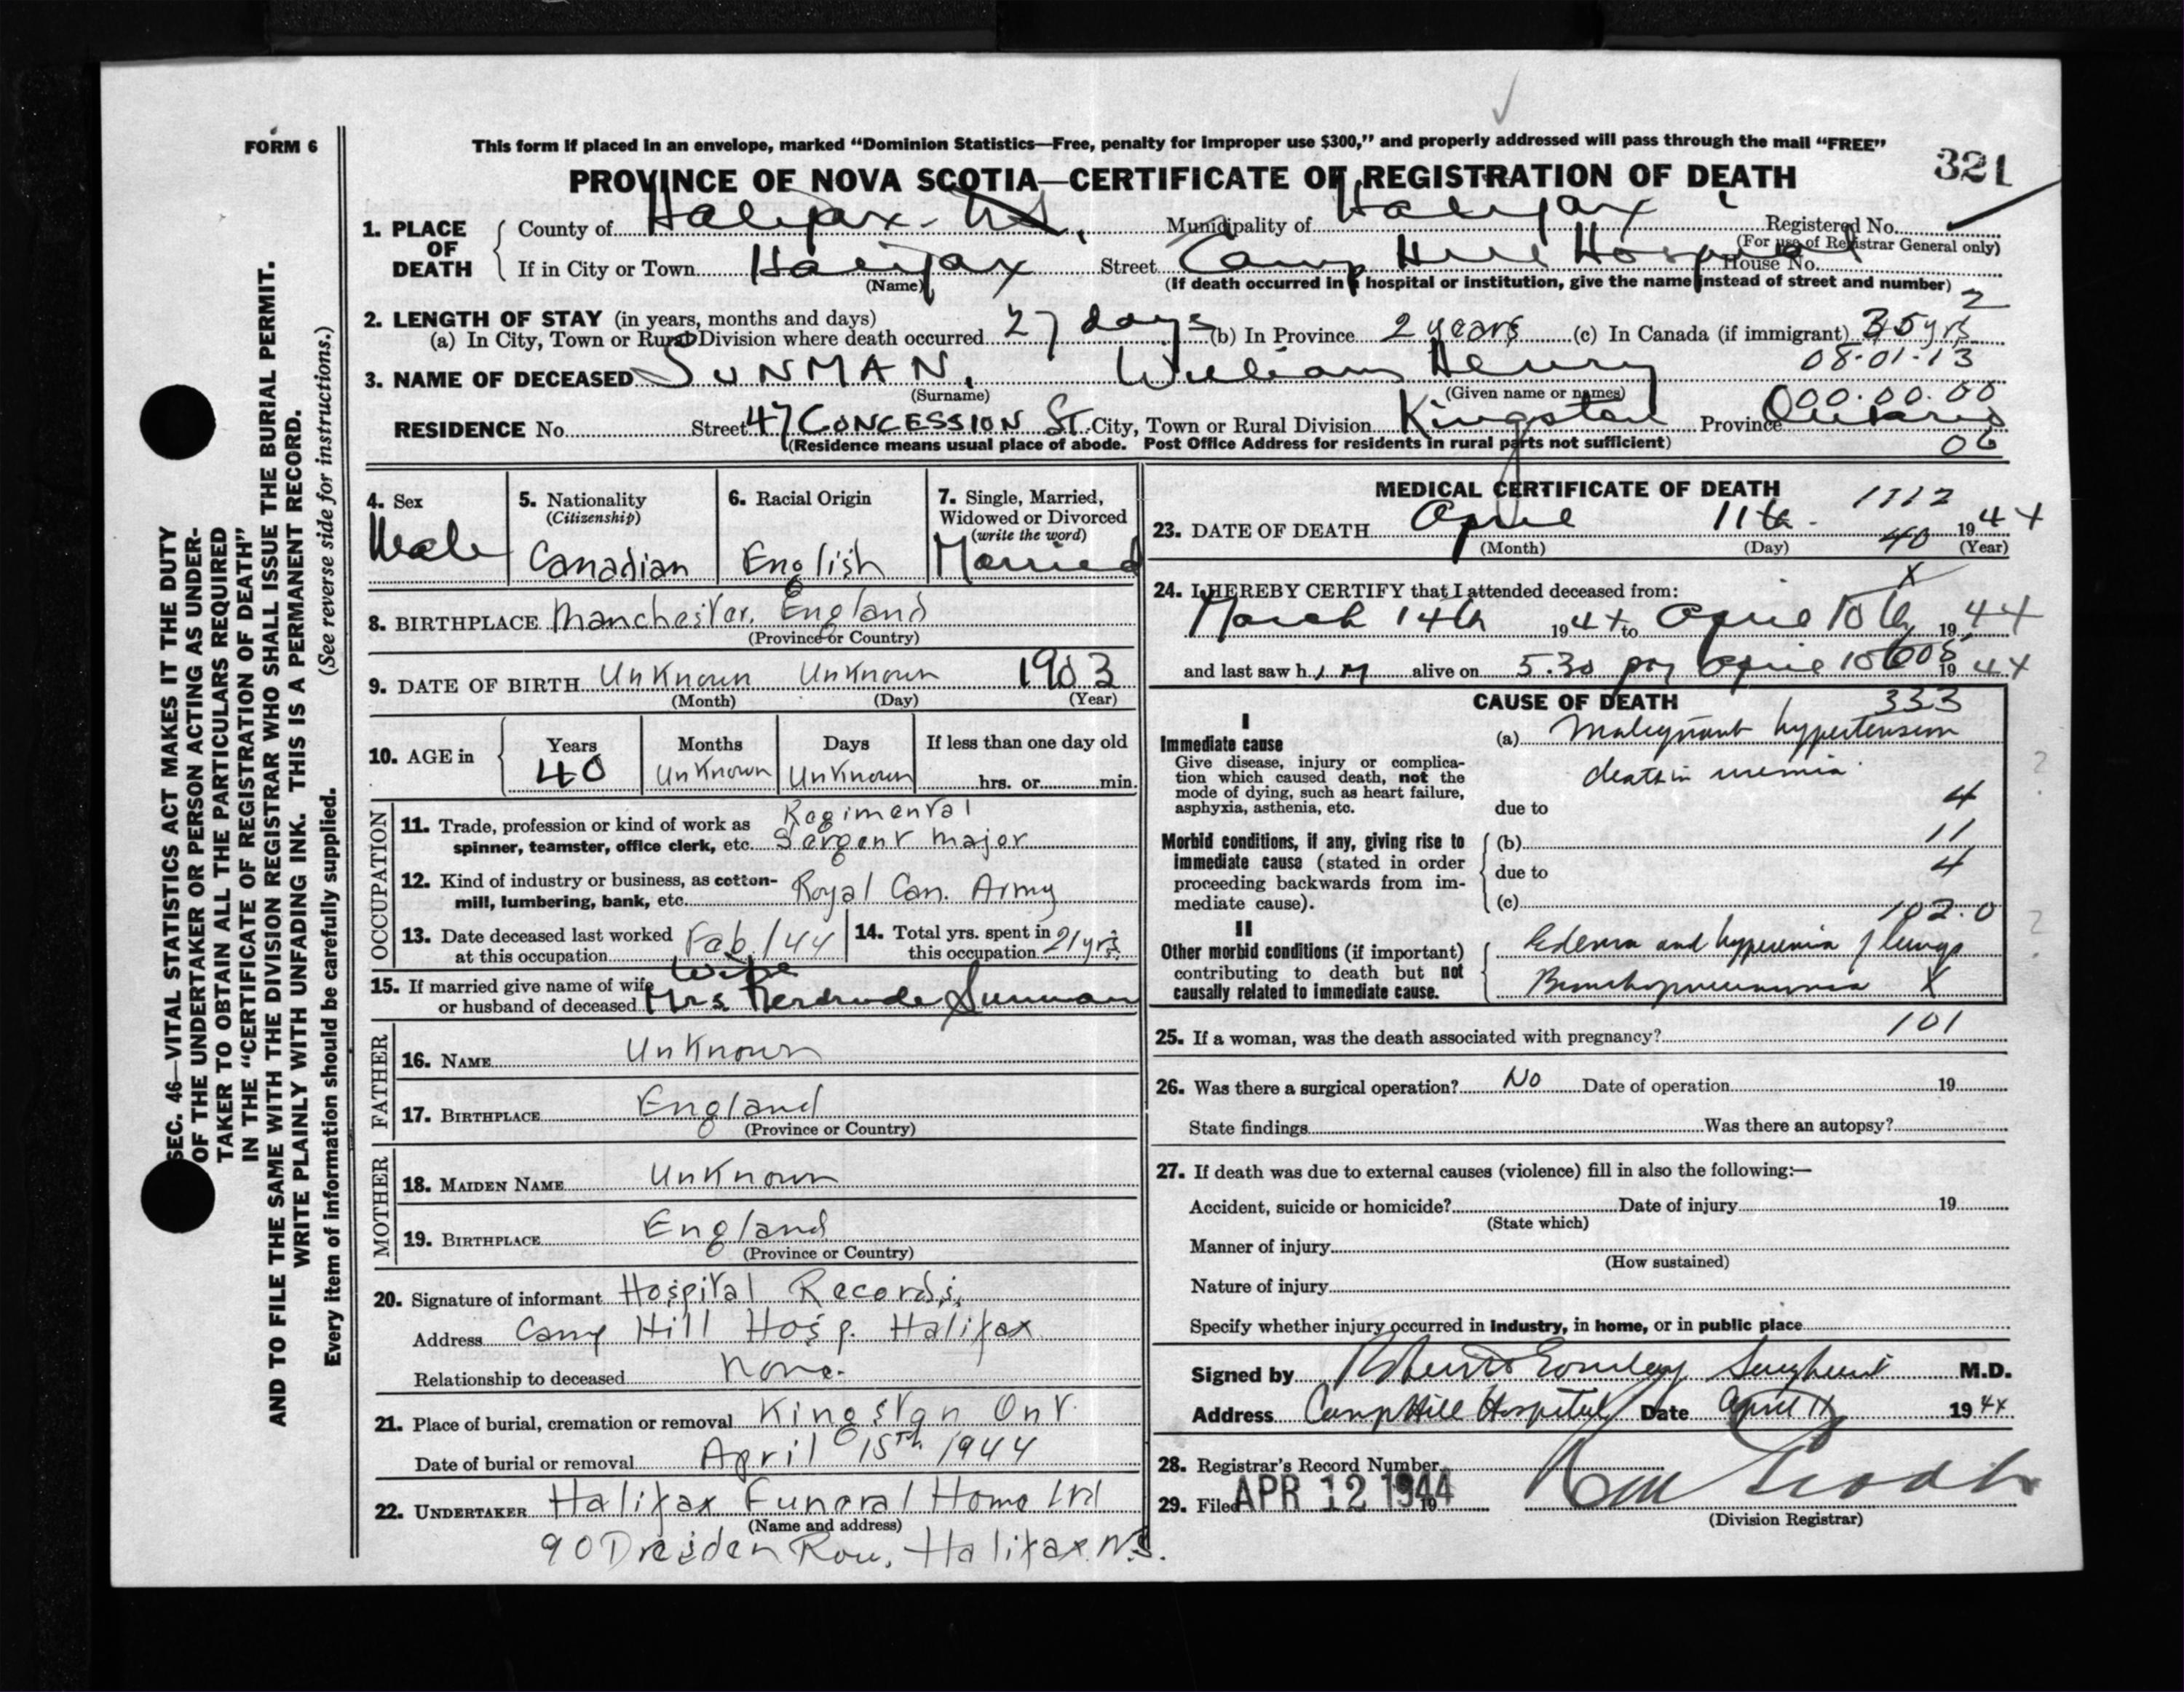 FORM 6
This form if placed in an envelope, marked “Dominion Statistics—Free, penalty for improper use $300,” and properly addressed will pass through the mail “FREE”
321
PROVINCE OF NOVA SCOTIA—CERTIFICATE OF REGISTRATION OF DEATH
1. PLACE OF DEATH
County of Halifax - N.S. Municipality of Halifax Registered No.
(For use of Registrar General only)
If in City or Town Halifax Street Camp Hill Hospital House No.
(Name) (If death occurred in a hospital or institution, give the name instead of street and number)
2
2. LENGTH OF STAY (in years, months and days)
(a) In City, Town or Rural Division where death occurred 27 days (b) In Province 2 years (c) In Canada (if immigrant) 35 yrs
08-01-13
3. NAME OF DECEASED SUNMAN, William Henry
(Surname) (Given name or names)
000.00.00
RESIDENCE No. Street 47 CONCESSION ST. City, Town or Rural Division Kingston Province Ontario
(Residence means usual place of abode. Post Office Address for residents in rural parts not sufficient)
06
4. Sex Male
5. Nationality (Citizenship) Canadian
6. Racial Origin English
7. Single, Married, Widowed or Divorced (write the word) Married
8. BIRTHPLACE Manchester, England
(Province or Country)
9. DATE OF BIRTH Unknown Unknown 1903
(Month) (Day) (Year)
10. AGE in Years 40 Months Unknown Days Unknown If less than one day old hrs. or min.
OCCUPATION
11. Trade, profession or kind of work as spinner, teamster, office clerk, etc. Regimental Sergent Major
12. Kind of industry or business, as cotton-mill, lumbering, bank, etc. Royal Can. Army
13. Date deceased last worked at this occupation Feb/44
14. Total yrs. spent in this occupation 21 yrs
15. If married give name of wife or husband of deceased Wife Mrs Gerdrude Sunman
FATHER
16. NAME Unknown
17. BIRTHPLACE England
(Province or Country)
MOTHER
18. MAIDEN NAME Unknown
19. BIRTHPLACE England
(Province or Country)
20. Signature of informant Hospital Records,
Address Camp Hill Hosp. Halifax
Relationship to deceased None.
21. Place of burial, cremation or removal Kingston Ont.
Date of burial or removal April 15th 1944
22. UNDERTAKER Halifax Funeral Home Ltd
(Name and address)
90 Dresden Row, Halifax N.S.
MEDICAL CERTIFICATE OF DEATH
23. DATE OF DEATH April 11th 1944
(Month) (Day) (Year)
40
24. I HEREBY CERTIFY that I attended deceased from:
X
March 14th 1944 to April 10th 1944
and last saw him alive on 5.30 pm April 10th 1944
CAUSE OF DEATH
333
I
Immediate cause
Give disease, injury or complication which caused death, not the mode of dying, such as heart failure, asphyxia, asthenia, etc.
(a) Malignant hypertension
death in uremia
due to
4
Morbid conditions, if any, giving rise to immediate cause (stated in order proceeding backwards from immediate cause).
(b) 11
due to 4
(c) 102.0
II
Other morbid conditions (if important) contributing to death but not causally related to immediate cause.
Edema and hyperemia of lungs
Bronchopneumonia X
25. If a woman, was the death associated with pregnancy? 101
26. Was there a surgical operation? No Date of operation 19
State findings Was there an autopsy?
27. If death was due to external causes (violence) fill in also the following:—
Accident, suicide or homicide? Date of injury 19
(State which)
Manner of injury
(How sustained)
Nature of injury
Specify whether injury occurred in industry, in home, or in public place
Signed by M.D.
Address Camp Hill Hospital Date April 11 1944
28. Registrar's Record Number
29. Filed APR 12 1944 19
(Division Registrar)
SEC. 46—VITAL STATISTICS ACT MAKES IT THE DUTY
OF THE UNDERTAKER OR PERSON ACTING AS UNDER-
TAKER TO OBTAIN ALL THE PARTICULARS REQUIRED
IN THE “CERTIFICATE OF REGISTRATION OF DEATH”
AND TO FILE THE SAME WITH THE DIVISION REGISTRAR WHO SHALL ISSUE THE BURIAL PERMIT.
WRITE PLAINLY WITH UNFADING INK. THIS IS A PERMANENT RECORD.
Every item of information should be carefully supplied. (See reverse side for instructions.)